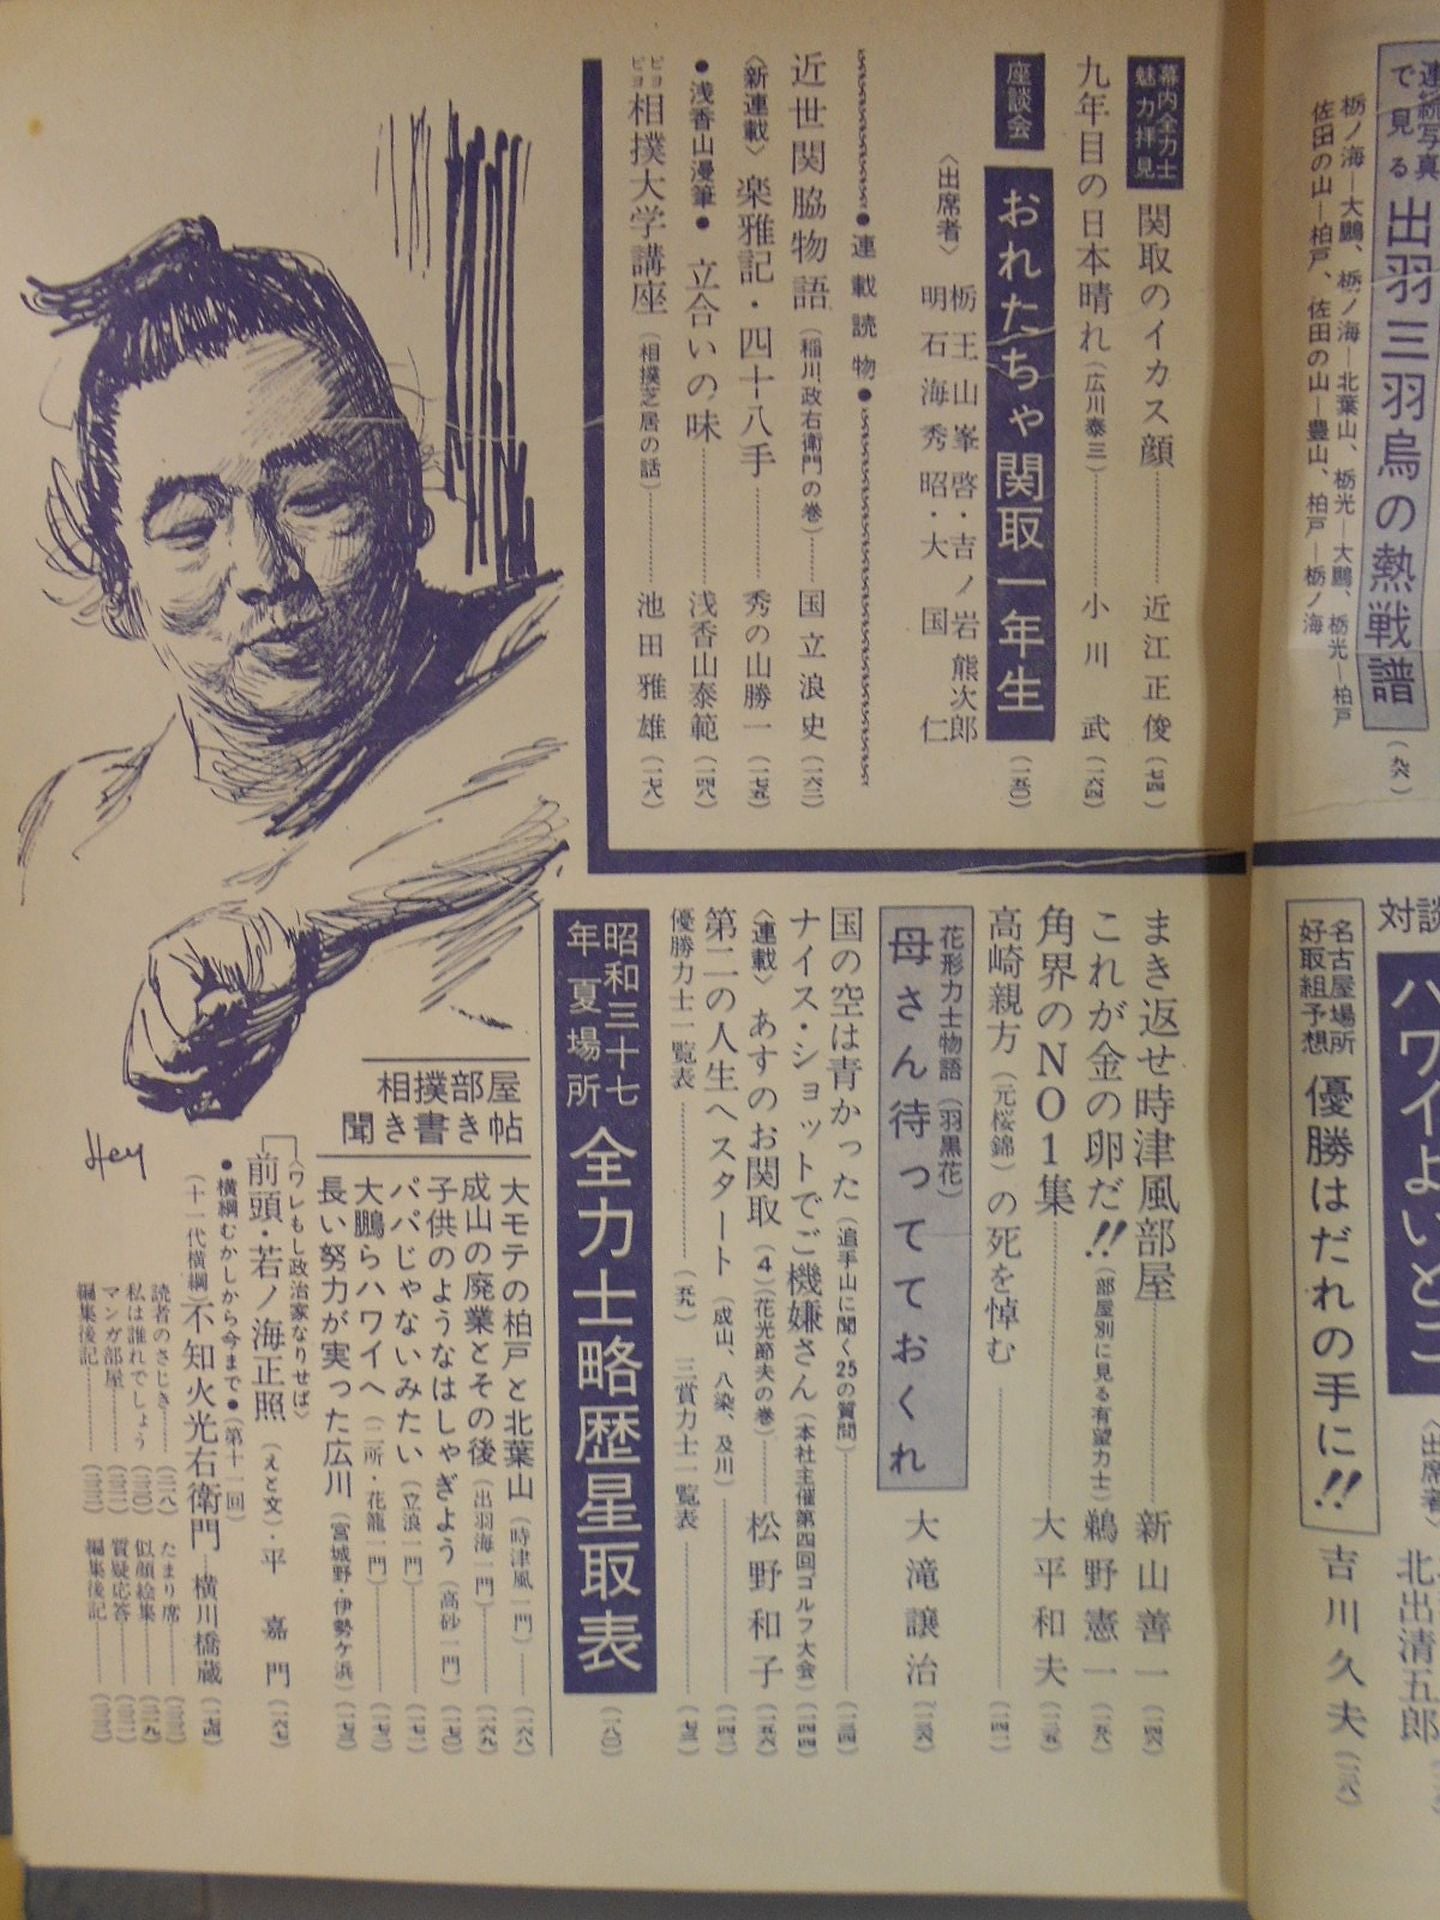 連続写真
で見る
出羽三羽烏の熱戦譜
栃ノ海―大鵬、栃ノ海―北葉山、栃光―大鵬、栃光―柏戸
佐田の山―柏戸、佐田の山―豊山、柏戸―栃ノ海
対談
ハワイよいとこ
〈出席者〉
北出清五郎
名古屋場所
好取組予想
優勝はだれの手に!!
吉川久夫
幕内全力士
魅力拝見
関取のイカス顔……近江正俊(七四)
九年目の日本晴れ(広川泰三)……小川武(一六四)
座談会
おれたちゃ関取一年生(一五〇)
〈出席者〉
栃王山峯啓・吉ノ岩熊次郎
明石海秀昭・大国仁
●連載読物●
近世関脇物語(稲川政右衛門の巻)……国立浪史(一六二)
〈新連載〉楽雅記・四十八手……秀の山勝一(一七五)
●浅香山漫筆●立合いの味……浅香山泰範(一四八)
ピヨピヨ相撲大学講座(相撲芝居の話)……池田雅雄(一七八)
まき返せ時津風部屋……新山善一(一四六)
これが金の卵だ!!(部屋別に見る有望力士)鵜野憲一(一五八)
角界のNO1集……大平和夫(一三五)
高崎親方(元桜錦)の死を悼む……(一四一)
花形力士物語(羽黒花)
母さん待ってておくれ
大滝譲治(一三六)
国の空は青かった(追手山に聞く25の質問)……(一三四)
ナイス・ショットでご機嫌さん(本社主催第四回ゴルフ大会)(一四四)
〈連載〉あすのお関取(4)(花光節夫の巻)……松野和子(一五六)
第二の人生へスタート(成山、八染、及川)……(一四二)
優勝力士一覧表……(五九)三賞力士一覧表……(七三)
昭和三十七
年夏場所
全力士略歴星取表(一八〇)
相撲部屋
聞き書き帖
大モテの柏戸と北葉山(時津風一門)……(一六八)
成山の廃業とその後(出羽海一門)……(一六九)
子供のようなはしゃぎよう(高砂一門)(一七〇)
パパじゃないみたい(立浪一門)……(一七一)
大鵬らハワイへ(二所・花籠一門)……(一七二)
長い努力が実った広川(宮城野・伊勢ケ浜)(一七三)
〈ワレもし政治家なりせば〉
前頭・若ノ海正照(えと文)・平嘉門(一六七)
●横綱むかしから今まで●(第十一回)
(十一代横綱)不知火光右衛門…横川橋蔵(一七四)
読者のさじき……
たまり席……
私は誰れでしょう
似顔絵集……
マンガ部屋……
質疑応答……
編集後記……
編集後記……
Hey